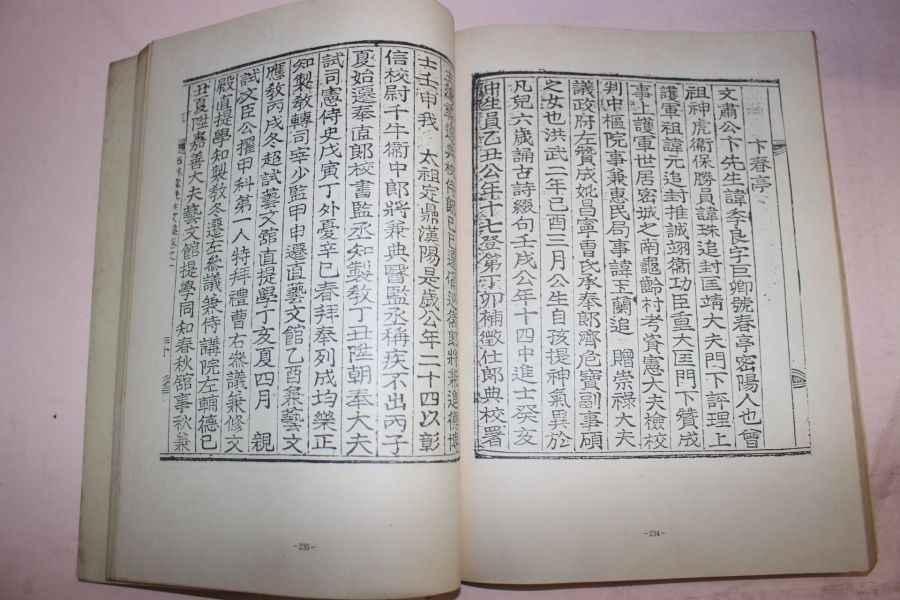 卞春亭
文肅公卞先生諱季良字巨卿號春亭密陽人也曾
祖神虎衛保勝員諱珠追封匡靖大夫門下評理上
護軍祖諱元追封推誠翊衛功臣重大匡門下贊成
事上護軍世居密城之南龜齡村考資憲大夫檢校
判中樞院事兼惠民局事諱玉蘭追贈崇祿大夫
議政府左贊成妣昌寧曺氏承奉郎濟危寶副事碩
之女也洪武二年己酉三月公生自孩提神氣異於
凡兒六歲誦古詩綴句壬戌公年十四中進士癸亥
中生員乙丑公年十七登第丁卯補徵仕郎典校署
士壬申我太祖定鼎漢陽是歲公年二十四以彰
信校尉千牛衛中郎將兼典醫監丞稱疾不出丙子
夏始還奉直郎校書監丞知製敎丁丑陞朝奉大夫
試司憲侍史戊寅丁外憂辛巳春拜奉列成均樂正
知製敎轉司宰少監甲申遷直藝文館乙酉兼藝文
應敎丙戌冬超試藝文舘直提學丁亥夏四月親
試文臣公擢甲科第一人特拜禮曹右參議兼修文
殿直提學知製敎冬遷左參議兼侍講院左輔德己
丑夏陞嘉善大夫藝文館提學同知春秋舘事秋兼
-235-
-234-